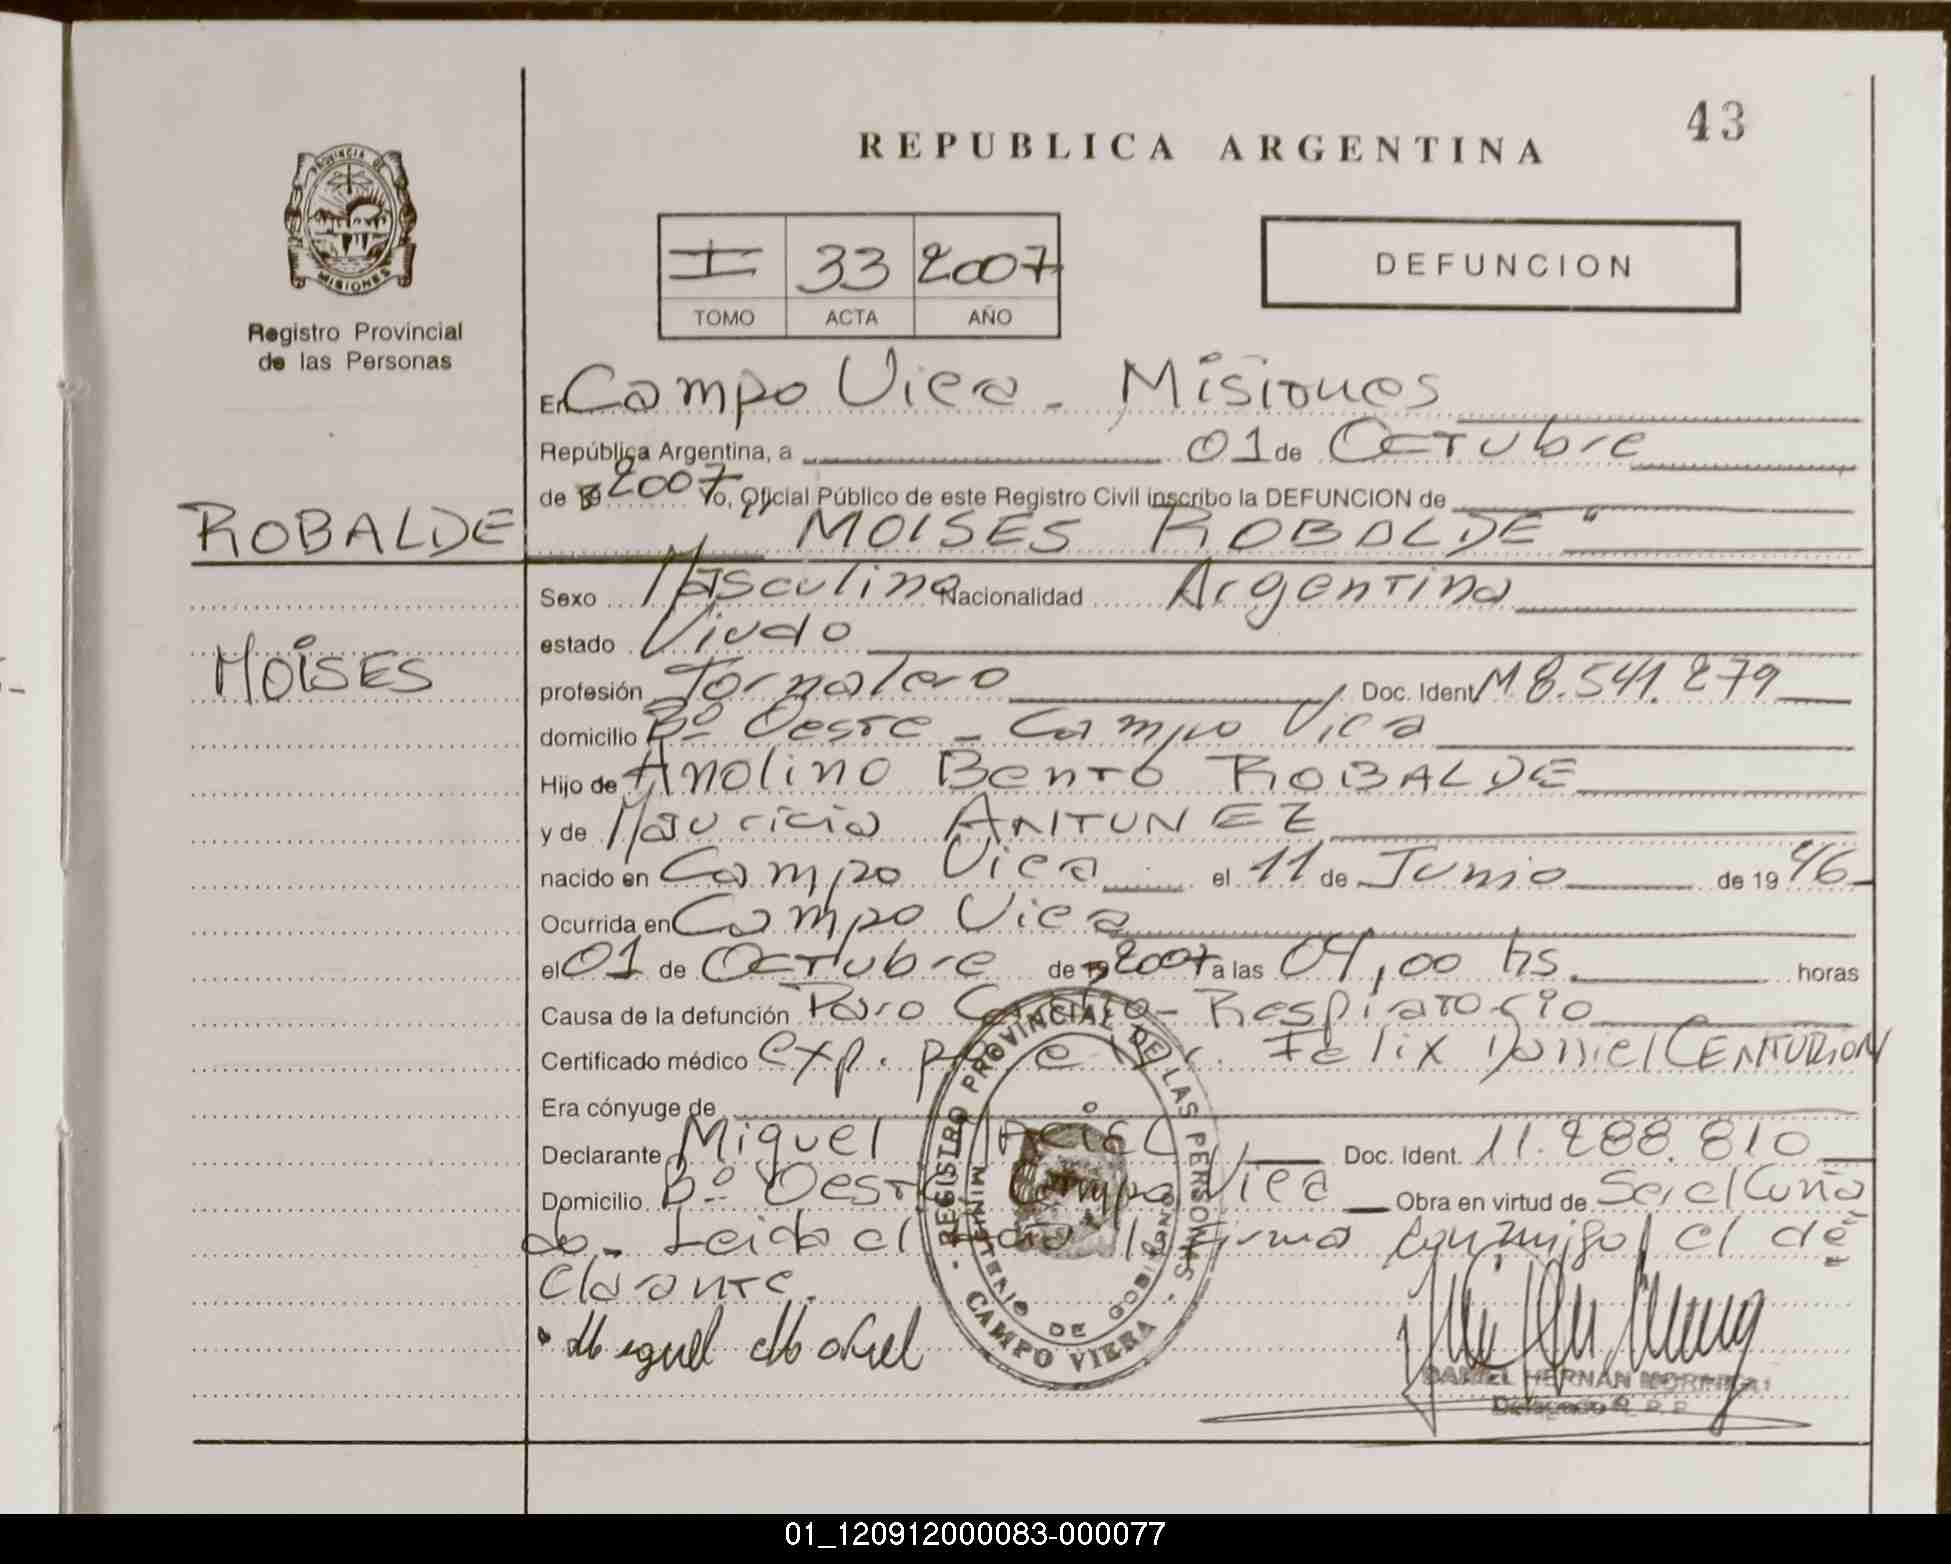 43
REPUBLICA ARGENTINA
PROVINCIA DE MISIONES
Registro Provincial
de las Personas
I 33 2007
TOMO ACTA AÑO
DEFUNCION
En Campo Viera - Misiones
República Argentina, a 01 de Octubre
de 19 2007 Yo, Oficial Público de este Registro Civil inscribo la DEFUNCION de
ROBALDE
MOISES ROBALDE"
Sexo Masculino Nacionalidad Argentina
estado Viudo
MOISES
profesión Jornalero Doc. Ident M 8.541.279
domicilio Bº Oeste - Campo Viera
Hijo de Anolino Bento ROBALDE
y de Mauricia ANTUNEZ
nacido en Campo Viera el 11 de Junio de 19 46
Ocurrida en Campo Viera
el 01 de Octubre de 19 2007 a las 04,00 hs. horas
Causa de la defunción Paro Cardio-Respiratorio
Certificado médico exp. por el Dr. Felix Daniel CENTURION
Era cónyuge de
Declarante Miguel Doc. Ident. 11.288.810
Domicilio Bº Oeste Campo Viera Obra en virtud de Ser el Cuña
do.- Leida el Acta la firma conmigo el de
clarante.
Miguel
REGISTRO PROVINCIAL DE LAS PERSONAS
MINISTERIO DE GOBIERNO
CAMPO VIERA
DANIEL HERNAN
Delegado R. P. P.
01_120912000083-000077